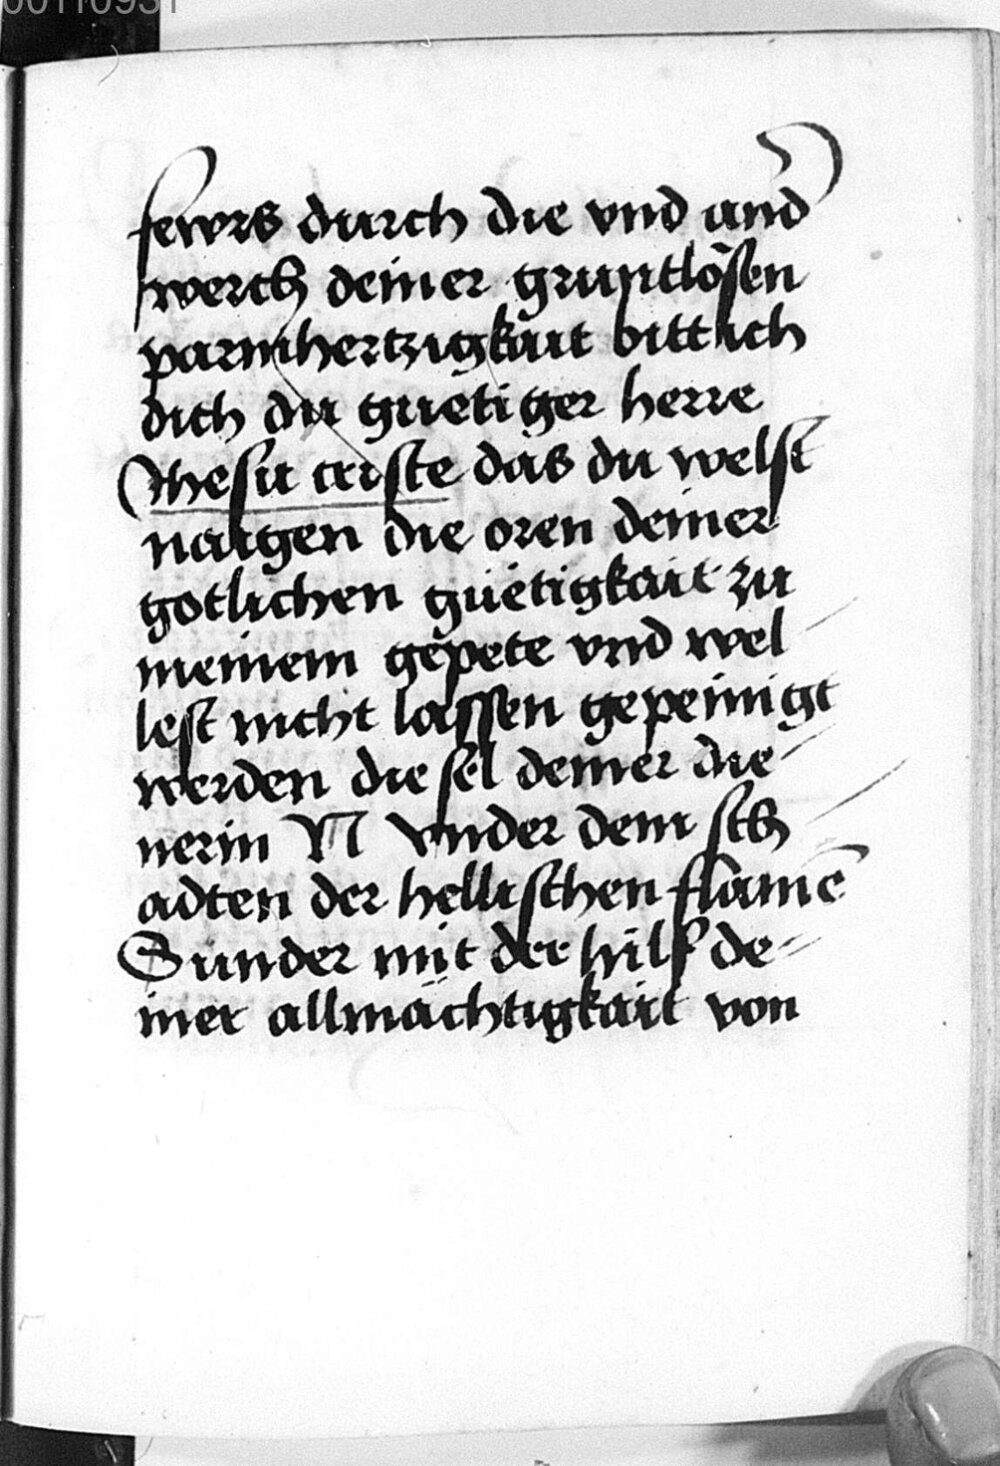 00110931
fewrs durch die vnd and̕
werch deiner gruntlösen
parmhertzigkait bitt ich
dich du guetiger herre
Jhesu criste das du welst
naigen die oren deiner
gotlichen güetigkait zu
meinem gepete vnd wel
lest nicht lassen gepeinigt
werden die sel deiner die-
nerin N vnder dem sch
adten der hellischen flamē
Sunder mit der hilf de-
iner allmächtigkait von